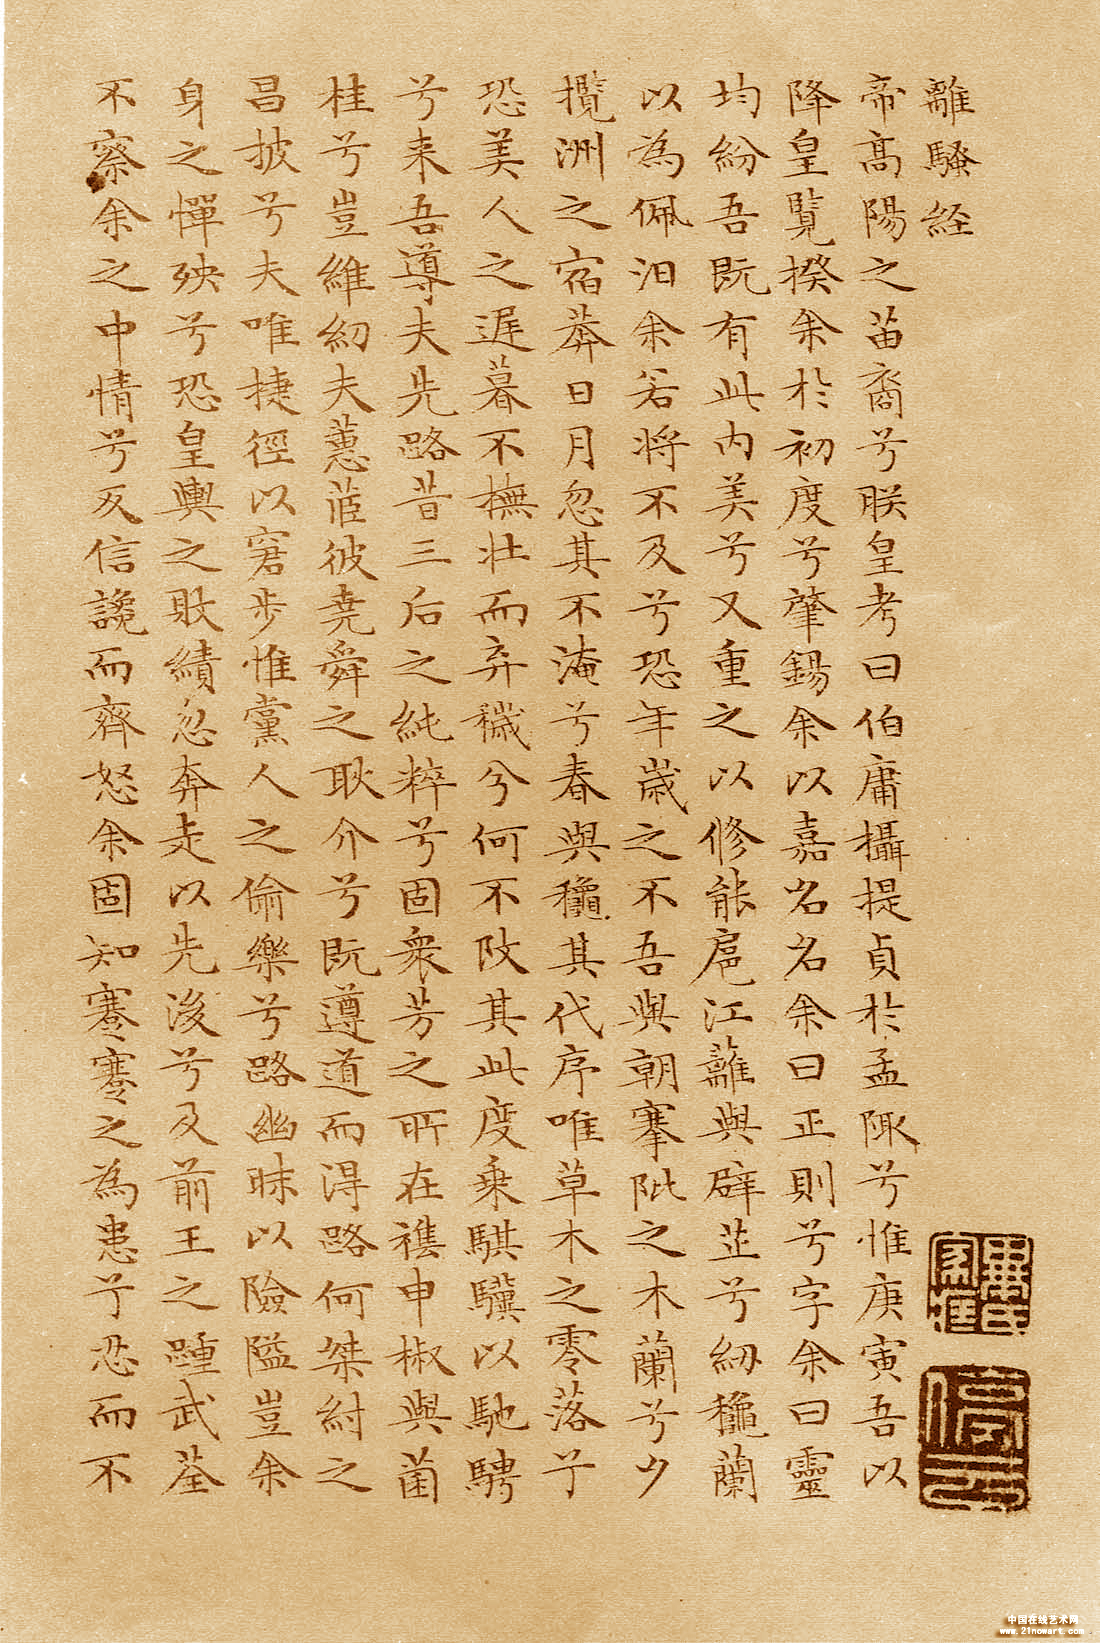 離騷經
帝髙陽之苗裔兮朕皇考曰伯庸攝提貞於孟陬兮惟庚寅吾以
降皇覽揆余於初度兮肇錫余以嘉名名余曰正則兮字余曰靈
均紛吾既有此内美兮又重之以修能扈江蘺與辟芷兮紉穐蘭
以為佩汨余若将不及兮恐年歳之不吾與朝搴阰之木蘭兮夕
攬洲之宿莽日月忽其不淹兮春與穐其代序唯草木之零落兮
恐美人之遲暮不撫壮而弃穢兮何不改其此度乗騏驥以馳騁
兮来吾導夫先路昔三后之純粹兮固衆芳之所在襍申椒與菌
桂兮豈維紉夫蕙茝彼堯舜之耿介兮既遵道而得路何桀紂之
昌披兮夫唯捷徑以窘步惟黨人之偷樂兮路幽昧以險隘豈余
身之憚殃兮恐皇輿之敗績忽奔走以先後兮及前王之踵武荃
不察余之中情兮反信讒而齊怒余固知謇謇之為患兮忍而不
中国在线艺术网
www.21nowart.com